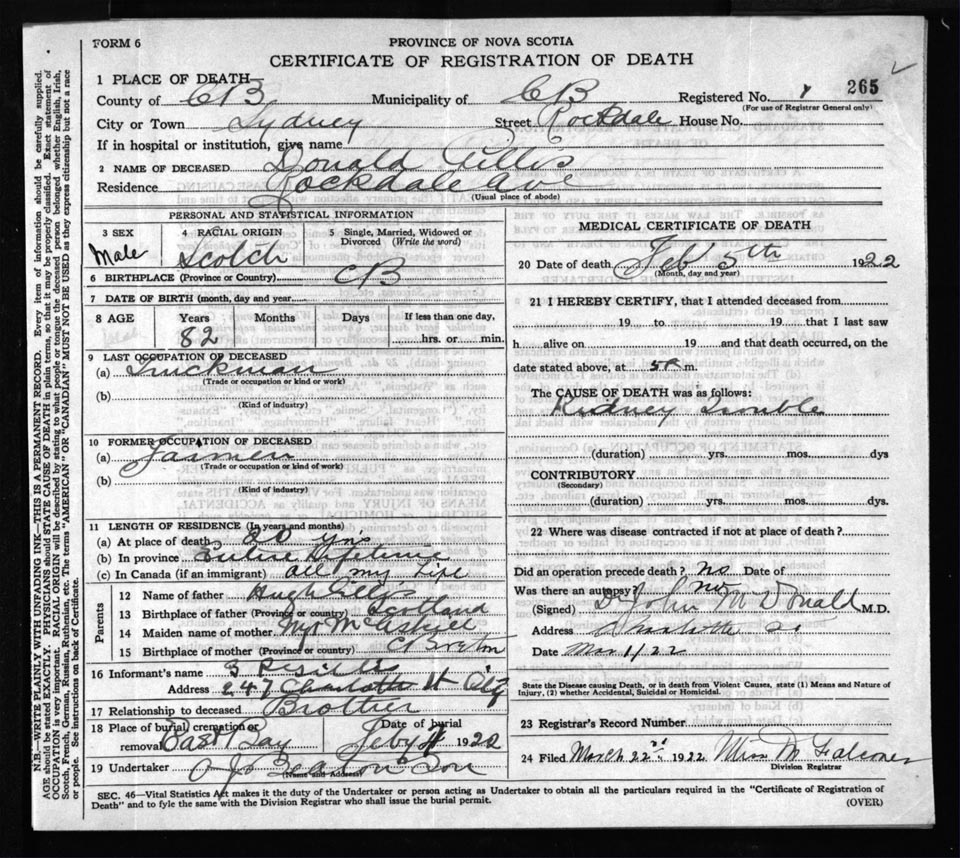 FORM 6
PROVINCE OF NOVA SCOTIA
CERTIFICATE OF REGISTRATION OF DEATH
1 PLACE OF DEATH—
County of CB Municipality of CB Registered No. 265
(For use of Registrar General only)
City or Town Sydney Street Rockdale House No.
If in hospital or institution, give name
2 NAME OF DECEASED Donald Gillis
Residence Rockdale Ave
(Usual place of abode)
PERSONAL AND STATISTICAL INFORMATION
3 SEX Male
4 RACIAL ORIGIN Scotch
5 Single, Married, Widowed or Divorced (Write the word)
6 BIRTHPLACE (Province or Country) CB
7 DATE OF BIRTH (month, day and year)
8 AGE Years 82 Months Days If less than one day, hrs. or min.
9 LAST OCCUPATION OF DECEASED
(a) Truckman
(Trade or occupation or kind of work)
(b)
(Kind of industry)
10 FORMER OCCUPATION OF DECEASED
(a) Farmer
(Trade or occupation or kind of work)
(b)
(Kind of industry)
11 LENGTH OF RESIDENCE (In years and months)
(a) At place of death 80 yrs
(b) In province Entire Lifetime
(c) In Canada (if an immigrant) all my Life
Parents
12 Name of father Hugh Gillis
13 Birthplace of father (Province or country) Scotland
14 Maiden name of mother McAskill
15 Birthplace of mother (Province or country) C Breton
16 Informant's name
Address 247 Charlotte St City
17 Relationship to deceased Brother
18 Place of burial, cremation or removal East Bay Date of burial Feby 1922
19 Undertaker Beaton & Son
(Name and Address)
MEDICAL CERTIFICATE OF DEATH
20 Date of death Feb 5th 1922
(Month, day and year)
21 I HEREBY CERTIFY, that I attended deceased from
19 to 19 that I last saw
h alive on 19 and that death occurred, on the
date stated above, at 5 P m.
The CAUSE OF DEATH was as follows:
Kidney Trouble
(duration) yrs. mos. dys
CONTRIBUTORY
(Secondary)
(duration) yrs. mos. dys.
22 Where was disease contracted if not at place of death?
Did an operation precede death? No Date of
Was there an autopsy? no
(Signed) Dr John McDonald M.D.
Address
Date Mar 1/22
State the Disease causing Death, or in death from Violent Causes, state (1) Means and Nature of
Injury, (2) whether Accidental, Suicidal or Homicidal.
23 Registrar's Record Number
24 Filed March 22nd 1922 Miss M
Division Registrar
SEC. 46—Vital Statistics Act makes it the duty of the Undertaker or person acting as Undertaker to obtain all the particulars required in the "Certificate of Registration of
Death" and to fyle the same with the Division Registrar who shall issue the burial permit.
(OVER)
N.B.—WRITE PLAINLY WITH UNFADING INK—THIS IS A PERMANENT RECORD. Every item of information should be carefully supplied.
AGE should be stated EXACTLY. PHYSICIANS should STATE CAUSE OF DEATH in plain terms, so that it may be properly classified. Exact statement of
OCCUPATION is very important. RACIAL ORIGIN will be described by stating to what people or tongue the deceased person belonged whether English, Irish,
Scotch, French, German, Russian, Ruthenian, etc. The terms "AMERICAN" OR "CANADIAN" MUST NOT BE USED as they express citizenship but not a race
or people. See instructions on back of Certificate.